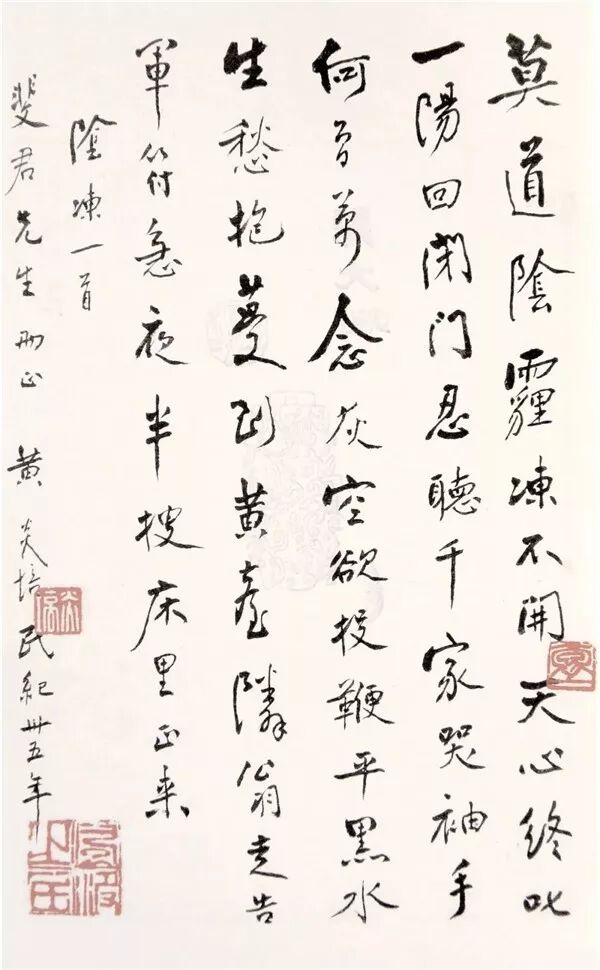 莫道陰霾凍不開天心終叱
一陽回閉門忍聽千家哭袖手
何曾萬念灰空欲投鞭平黑水
生愁抱蔓到黃臺隣翁走告
軍符急夜半搜床里正來
陰凍一首
斐君先生刪正 黃炎培 民紀卅五年